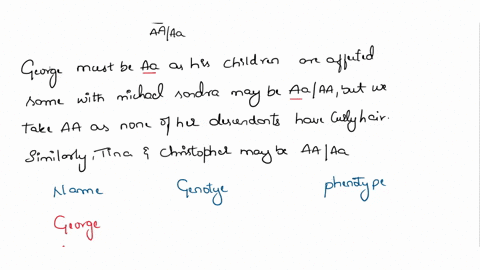 AA/Aa
George must be Aa as his children are affected
some with michael sondra may be Aa/AA, but we
take AA as none of her descendants have Curly hair.
Similarly, Tina & Christopher may be AA/Aa
Name Genotye phenotype
George